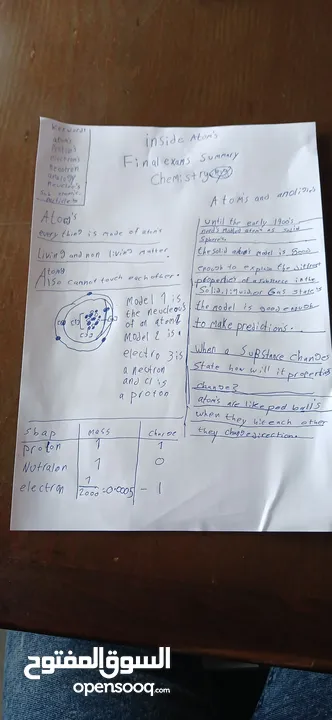 Keywords
atoms
proton
electrons
neutron
analogy
neucleus
Sub atomic
particle's
inside Atom's
Final exams Summary
Chemistry
Atom's
every thing is made of atoms
Living and non living matter.
Atoms
Also cannot touch each other.
model 1 is
the neucleous
of an atom
model 2 is a
electro 3 is
a neutron
and is
a proton
Sbap mass Charge
proton 1 1
Nutralon 1 0
electron 1/2000 = 0.0005 - 1
Atoms and
Until the early 1900's
atoms as solid
Spheres
the solid atom model is good
enough to explain the different
properties of a substance in the
Solid, liquid or Gas states
the model is good enough
to make predictions.
When a Substance changes
State how will it properties
change?
atoms are like ball's
when they each other
they change direction.
السوق المفتوح
opensooq.com